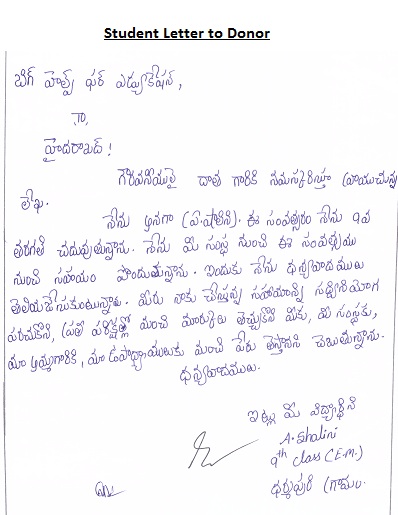 Student Letter to Donor
బిగ్ హెల్ప్ ఫర్ ఎడ్యుకేషన్,
To,
హైదరాబాద్!
గౌరవనీయులై దాత గారికి నమస్కరిస్తూ వ్రాయుచున్న
లేఖ.
నేను అనగా (ఎ.షాలిని). ఈ సంవత్సరం నేను 9వ
తరగతి చదువుతున్నాను. నేను మీ సంస్థ నుంచి ఈ సంవత్సరము
నుంచి సహాయం పొందుతున్నాను. ఇందుకు నేను ధన్యవాదములు
తెలియజేసుకుంటున్నాను. మీరు నాకు చేస్తున్న సహాయాన్ని సద్వినియోగ
పరచుకొని, ప్రతి పరీక్షల్లో మంచి మార్కులు తెచ్చుకొని మీకు, మీ సంస్థకు,
మా అమ్మగారికి, మా ఉపాధ్యాయులకు మంచి పేరు తెస్తానని చెబుతున్నాను.
ధన్యవాదములు.
ఇట్లు మీ విద్యార్థిని
A. Shalini
9th class (E.M.)
ధర్మపురి గ్రామం.